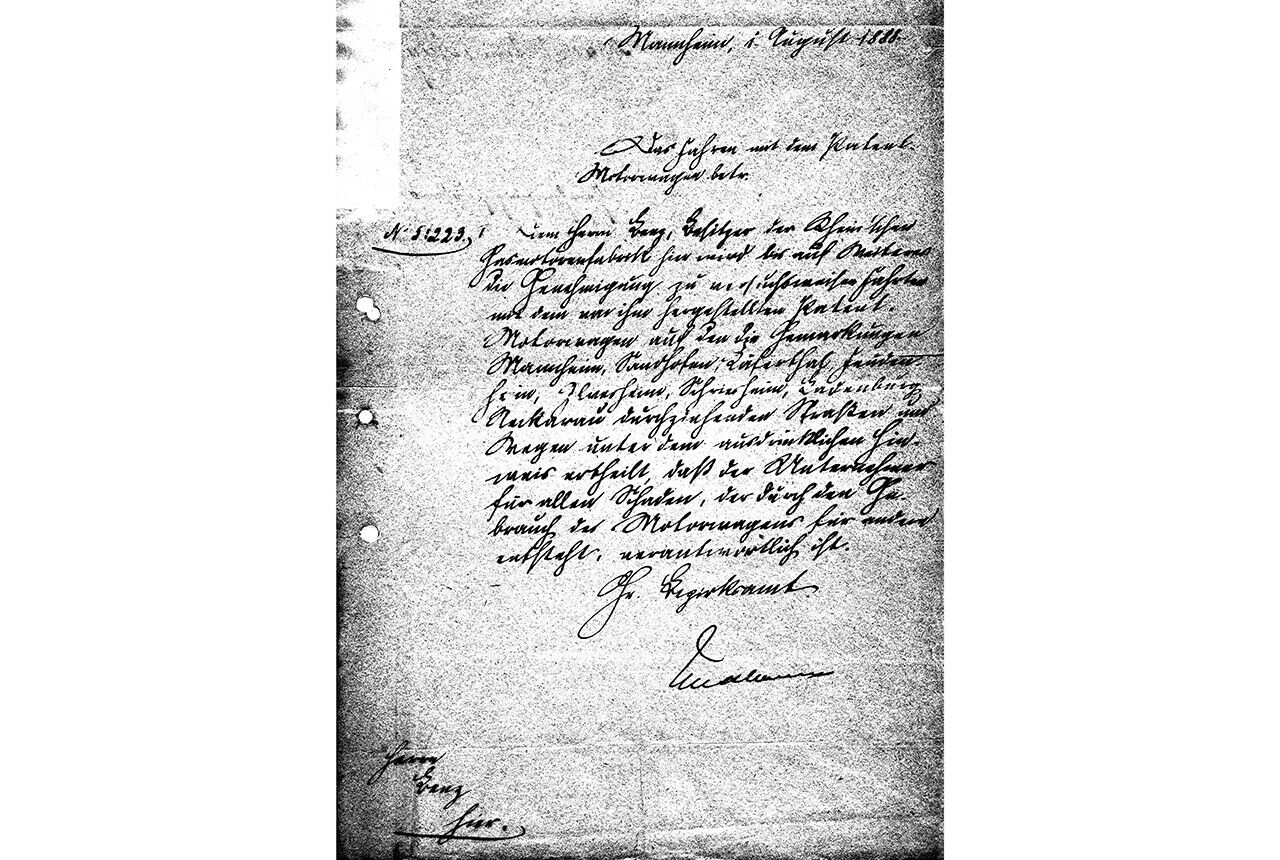 Mannheim, 1. August 1888.
Das Fahren mit dem Patent-
Motorwagen betr.
No 51223. I Dem Herrn Benz, Besitzer der Rhein'schen
Gasmotorenfabrik hier wird bis auf Weiteres
die Genehmigung zu versuchsweisen Fahrten
mit dem von ihm hergestellten Patent-
Motorwagen auf den die Gemarkungen
Mannheim, Sandhofen, Käferthal, Feuden-
heim, Ilvesheim, Schriesheim, Ladenburg,
Neckarau durchziehenden Straßen und
Wegen unter dem ausdrücklichen Hin-
weis ertheilt, daß der Unternehmer
für allen Schaden, der durch den Ge-
brauch des Motorwagens für andere
entsteht, verantwortlich ist.
Gr. Bezirksamt
Herrn
Benz
hier.